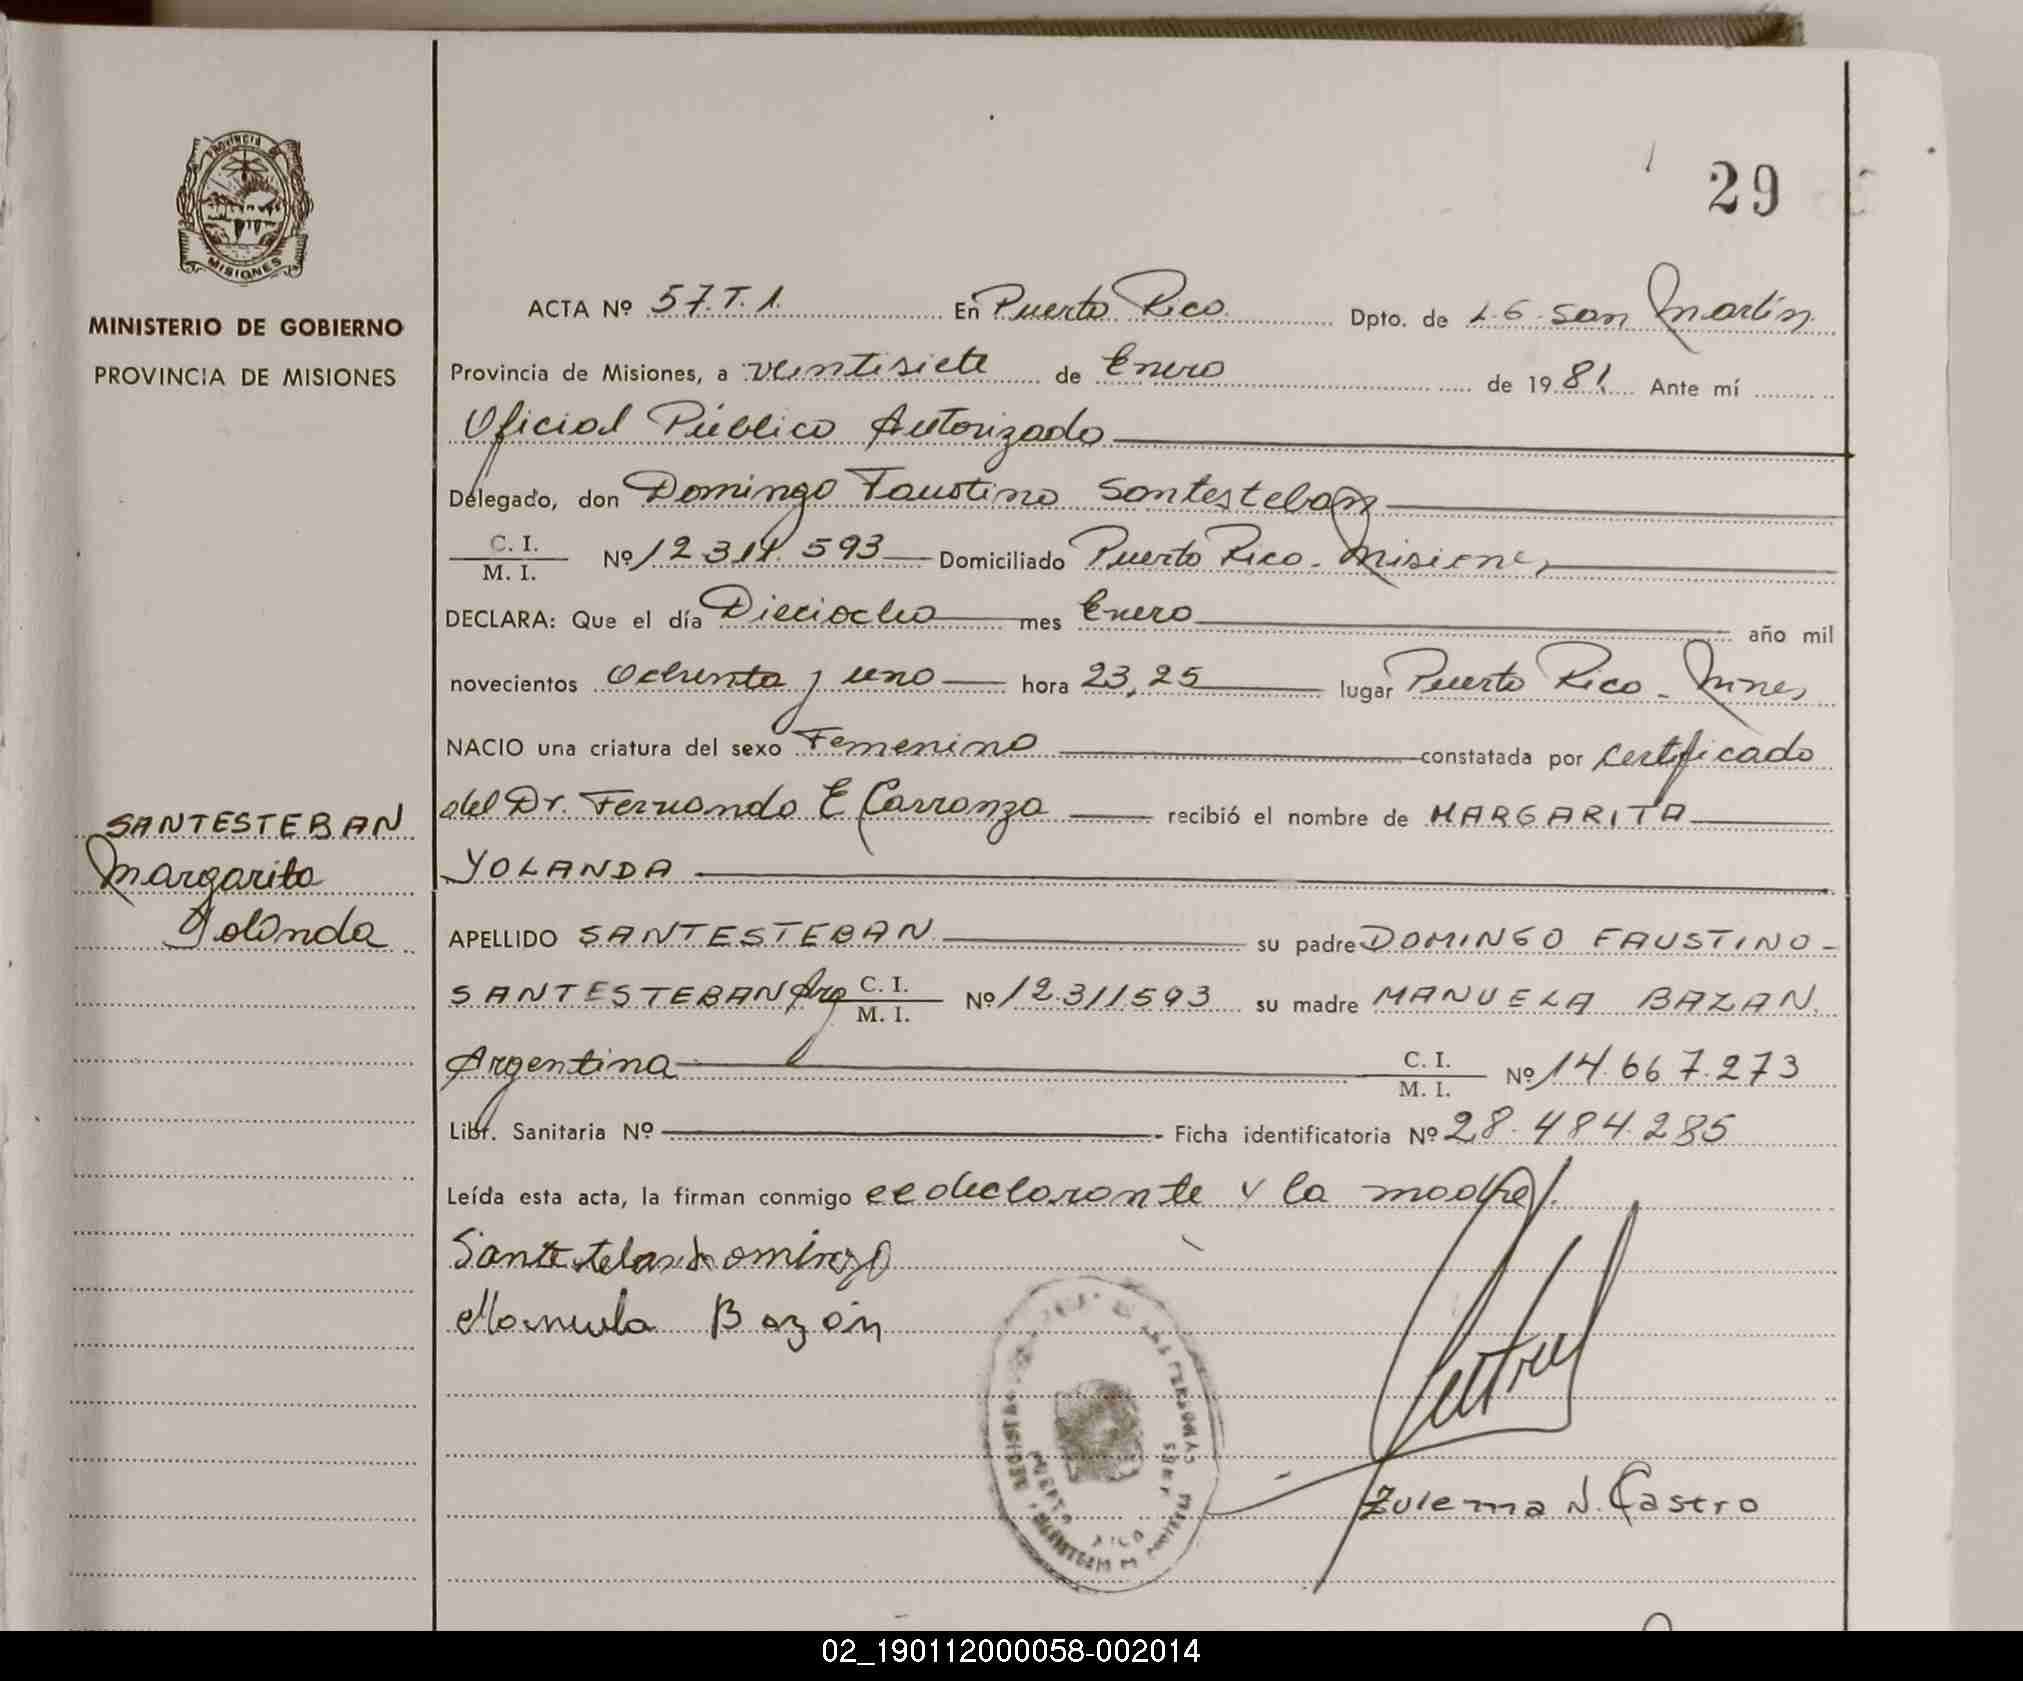 29
PROVINCIA DE
MISIONES
MINISTERIO DE GOBIERNO
PROVINCIA DE MISIONES
ACTA Nº 57.T.1. En Puerto Rico Dpto. de L.G. San Martín
Provincia de Misiones, a veintisiete de Enero de 1981 Ante mí
Oficial Público Autorizado
Delegado, don Domingo Faustino Santesteban
C. I. / M. I. Nº 12.311.593 Domiciliado Puerto Rico - Misiones
DECLARA: Que el día Dieciocho mes Enero año mil
novecientos Ochenta y uno hora 23,25 lugar Puerto Rico - Mnes
NACIO una criatura del sexo Femenino constatada por certificado
del Dr. Fernando E Carranza recibió el nombre de MARGARITA
YOLANDA
SANTESTEBAN
Margarita
Yolanda
APELLIDO SANTESTEBAN su padre DOMINGO FAUSTINO
SANTESTEBAN Arg C. I. / M. I. Nº 12.311.593 su madre MANUELA BAZAN.
Argentina C. I. / M. I. Nº 14.667.273
Libr. Sanitaria Nº Ficha identificatoria Nº 28.484.285
Leída esta acta, la firman conmigo el declarante y la madre.
Santesteban Domingo
Manuela Bazán
PUERTO RICO
Zulema N. Castro
02_190112000058-002014